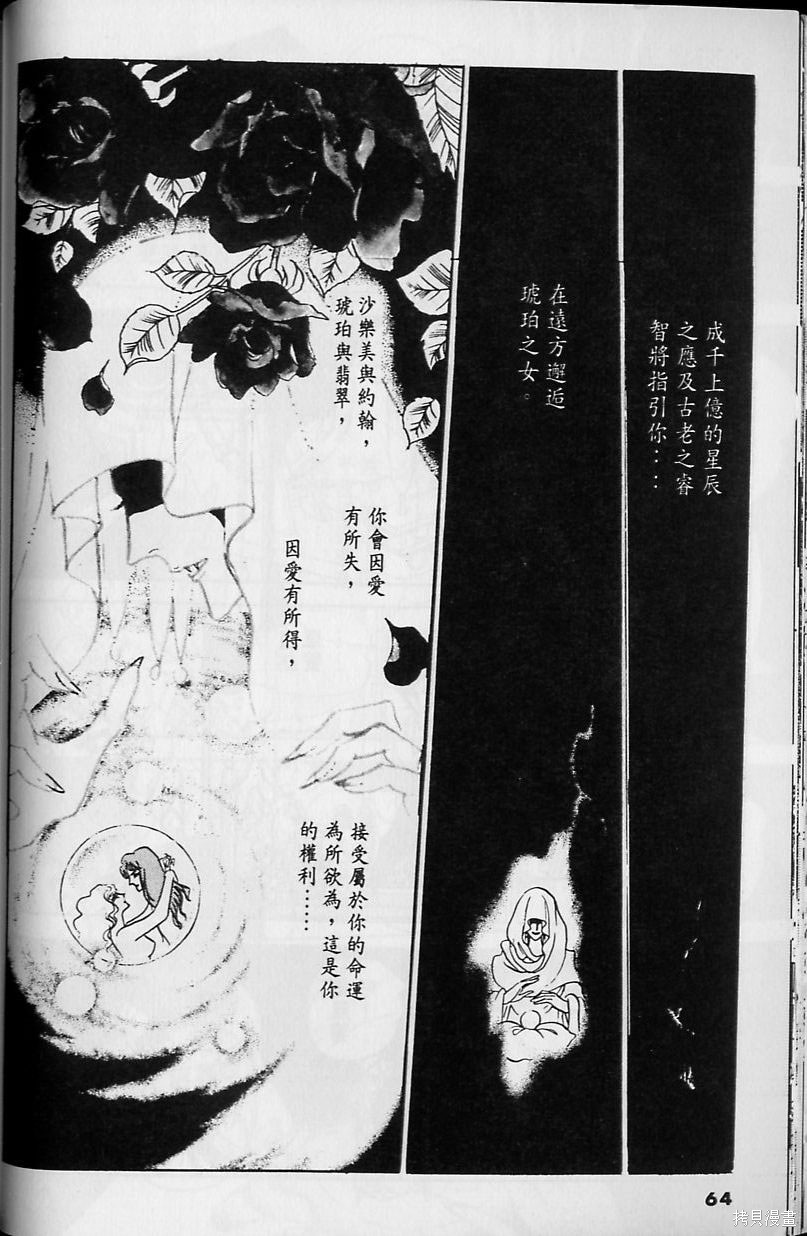 成千上億的星辰
之應及古老之睿
智將指引你……
在遠方邂逅
琥珀之女。
沙樂美與約翰，
琥珀與翡翠，
你會因愛
有所失，
因愛有所得，
接受屬於你的命運
為所欲為，這是你
的權利……
64
拷貝漫畫